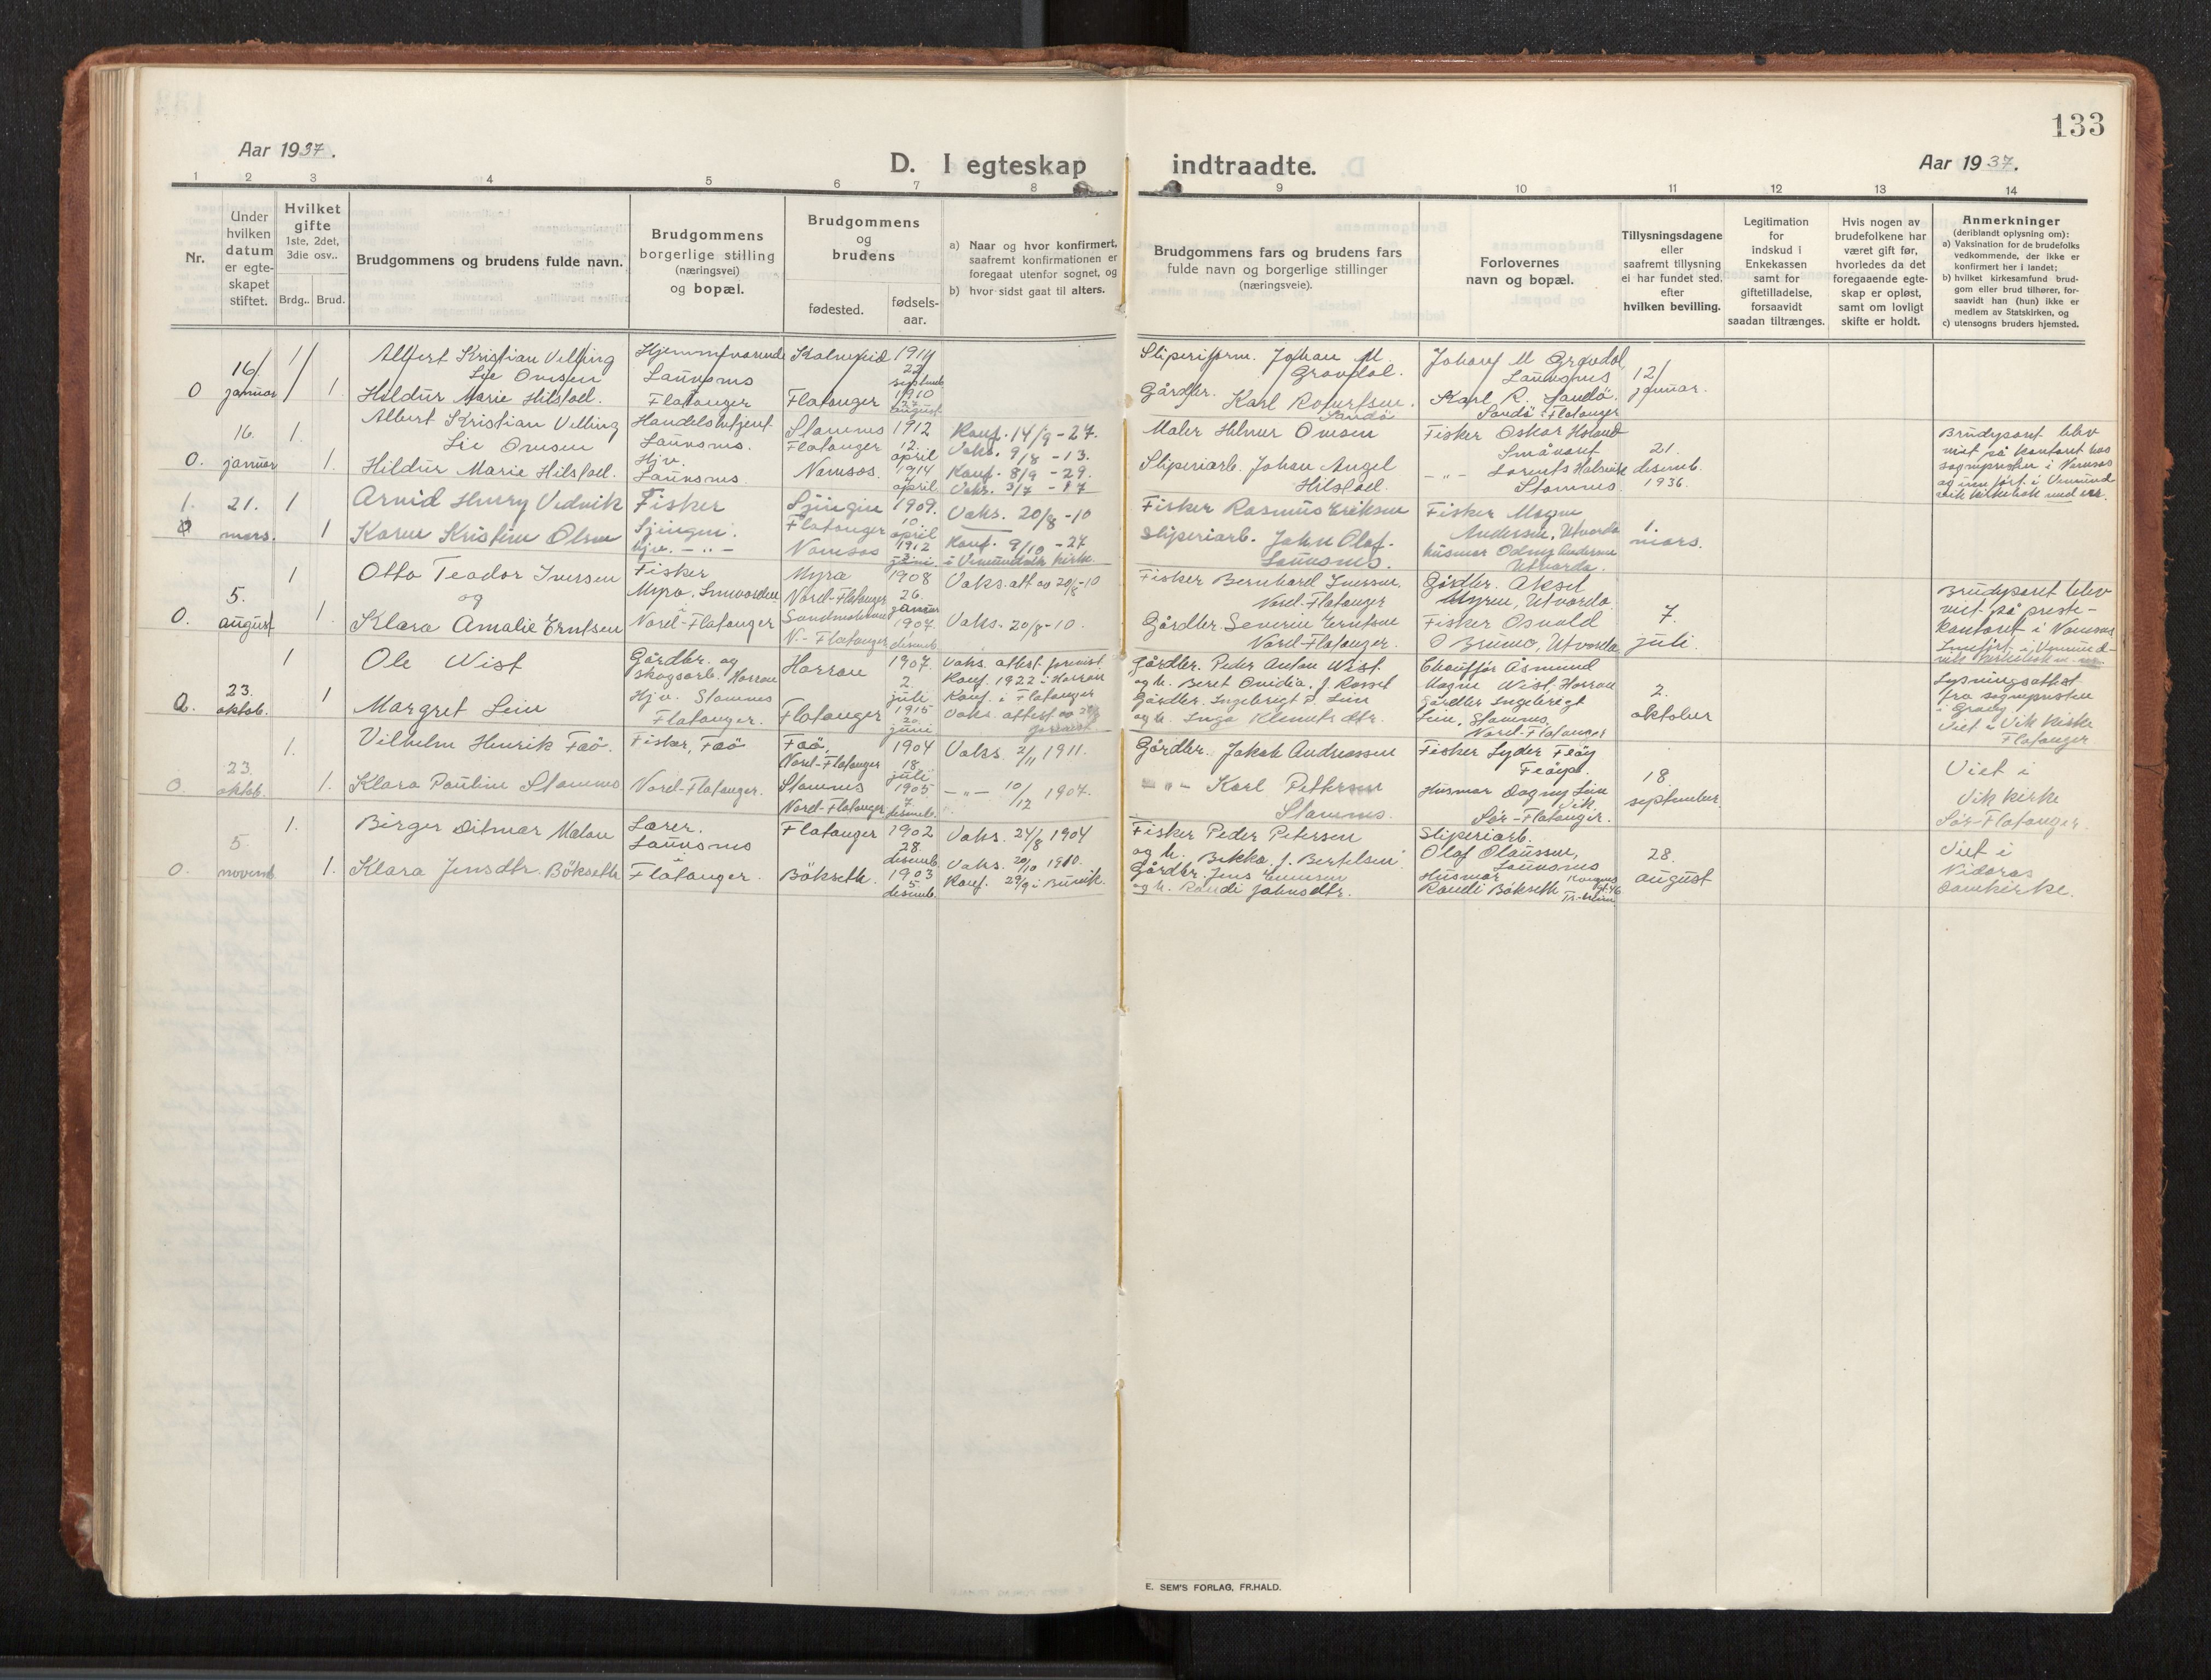 133
Aar 1937.
D. I egteskap indtraadte.
Aar 1937.
1 2 3 4 5 6 7 8 9 10 11 12 13 14
Nr.
Under hvilken datum er egte-skapet stiftet.
Hvilket gifte
1ste, 2det, 3die osv..
Brdg.. Brud.
Brudgommens og brudens fulde navn.
Brudgommens borgerlige stilling (næringsvei) og bopæl.
Brudgommens og brudens
fødested.
fødsels-aar.
a) Naar og hvor konfirmert, saafremt konfirmationen er foregaat utenfor sognet, og
b) hvor sidst gaat til alters.
Brudgommens fars og brudens fars fulde navn og borgerlige stillinger (næringsveie).
Forlovernes navn og bopæl.
Tillysningsdagene eller saafremt tillysning ei har fundet sted. efter hvilken bevilling.
Legitimation for indskud i Enkekassen samt for giftetilladelse, forsaavidt saadan tiltrænges.
Hvis nogen av brudefolkene har været gift før, hvorledes da det foregaaende egte-skap er opløst, samt om lovligt skifte er holdt.
Anmerkninger
(deriblandt oplysning om):
a) Vaksination for de brudefolks vedkommende, der ikke er konfirmert her i landet;
b) hvilket kirkesamfund brud-gom eller brud tilhører, for-saavidt han (hun) ikke er medlem av Statskirken, og
c) utensogns bruders hjemsted.
0 16/ januar 1 1.
Albert Kristian Velling
Lie Omsen
Hildur Marie Hilstad.
Launsnes
Flatanger
Flatanger
1914
22 septemb.
1910
27 august
Johan M. Gravdal.
Gårdbr. Karl Robertsen Sandö
Johan M Gravdal, Launsnes
Karl R. Sandö. Sandö i Flatanger
12/ januar.
0. 16. januar 1. 1.
Albert Kristian Velling
Lie Omsen
Hildur Marie Hilstad.
Handelsbetjent
Launsnes.
Hjv.
Launsnes
Stamnes
Flatanger
Namsos.
1912
12. april
1914
april
Konf. 14/9 - 27.
Vaks. 9/8 - 13.
Konf. 8/9 - 29.
Vaks. 3/7 - 17
Maler Hilmer Omsen
Sliperiarb. Johan Angel Hilstad.
Fisker Oskar Holand
Småvart
-"- Lorents Halsvik
Stamnes
21. desemb. 1936.
Brudeparet blev
viet på kontoret hos
sogneprester i Namsos
1. 0 21. mars. 1 1
Arnid Henry Vednik
Karen Kristine Olsen
Fisker
Sjingen.
Hjv. -"-
Sjingen
Flatanger
Namsos
1909.
10. april
1912
3. juni
Vaks. 20/8 - 10
Konf. 9/10 - 27
i Vemundvik kirke.
Fisker Rasmus Eriksen
Sliperiarb. John Olaf.
Launsnes.
Fisker Magne
Andersen, Utvorda
Husmor Odny Andersen
Utvorda.
1. mars.
0. 5. august 1 1.
Otto Teodor Iversen
og
Klara Amalie Erntsen
Fisker
Nord-Flatanger
Myra
Nord-Flatanger
N.-Flatanger
1908
26. januar
1907.
1 desemb.
Vaks.att av 20/8-10
Vaks. 20/8 - 10.
Fisker Bernhard Iversen.
Nord-Flatanger
Gårdbr Severin Erntsen
Nord-Flatanger.
Gårdbr. Aksel
Myren, Utvorda
Fisker Osvald
O Brumo, Utvorda
7. juli
Brudeparet blev
viet på preste-
kontoret i Namsos
0. 23. oktob. 1 1
Ole Wist
Margret Lein
Gårdbr. og
skogsarb. Harran
Hjv. Stamnes
Flatanger.
Harran
Flatanger
1907.
2. juli
1915
20. juni
Vaks. attest forevist.
Konf. 1922 i Harran
Konf. i Flatanger
Gårdbr. Peder Anton Wist.
og h. Beret Ovidia. J. Rosset
Gårdbr. Ingebrigt P. Lein
og h. Inga Klemets dtr.
Chauffør Åsmund
Magne Wist, Harran
Gårdbr Ingebrigt
Lein, Stamnes,
Nord-Flatanger
2. oktober
Lysningsattest
fra sognepresten
i Grong.
Viet i Vik kirke
Flatanger
0. 23. oktob. 1. 1.
Vilhelm Henrik Faö.
Klara Pauline Stamnes
Fisker, Faö
Nord-Flatanger.
Faö,
Nord-Flatanger
Stamnes
Nord-Flatanger
1904
18. juli
1905
7. desemb.
Vaks. 2/11 1911.
-"- 10/12 1907.
Gårdbr. Jakob Andreassen
-"- Karl Pettersen
Stamnes.
Fisker Lyder Fløy
Husmor Dagny Lein
Vik.
Sør-Flatanger.
18. september
Viet i
Vik kirke
Sør-Flatanger.
0. 5 novemb 1. 1.
Birger Ditmar Malan
Klara Jensdtr. Bökseth
Lærer.
Launsnes
Flatanger.
Flatanger
Bökseth.
1902
28. desemb.
1903
5. desemb.
Vaks. 24/8 1904
Vaks. 20/10 1910.
Konf. 29/9 i Burvik.
Fisker Peder Petersen
og h. Bekka. J. Bertelsen
Gårdbr. Jens Iversen
og h. Randi Johnsdtr.
Sliperiarb.
Olaf Olaussen,
Launsnes
Husmor
Randi Bökseth
28. august
Viet i
Nidaros
domkirke.
E. SEM'S FORLAG, FR.HALD.